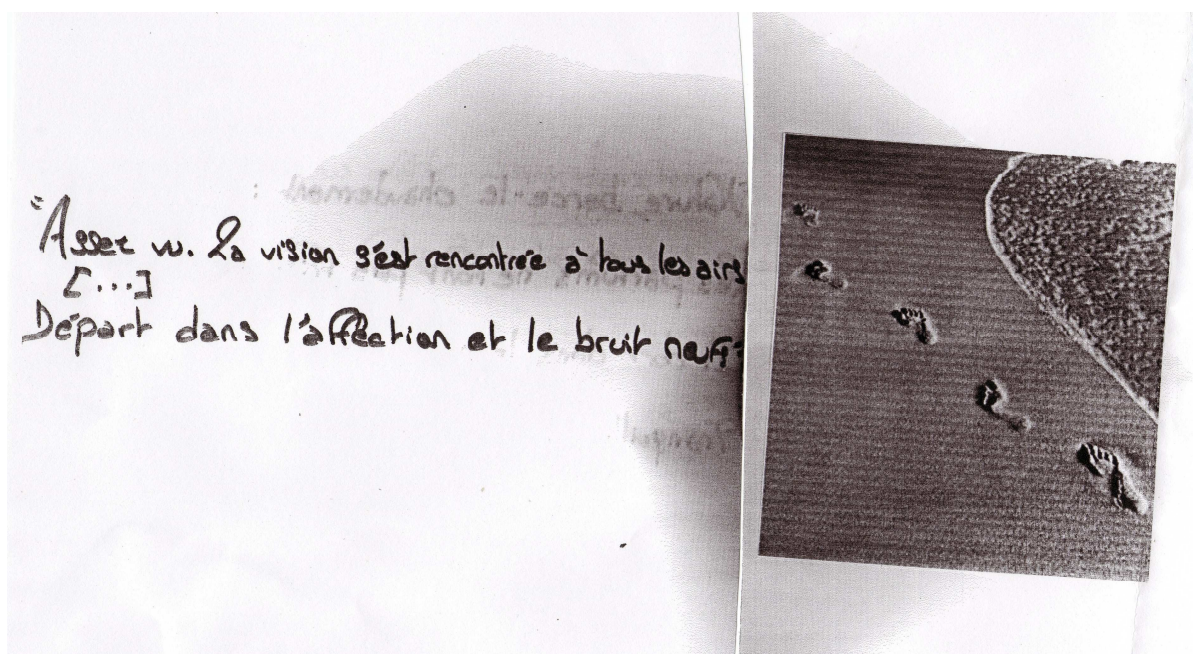 "Assez vu. La vision s'est rencontrée à tous les airs
[...]
Départ dans l'affection et le bruit neufs"